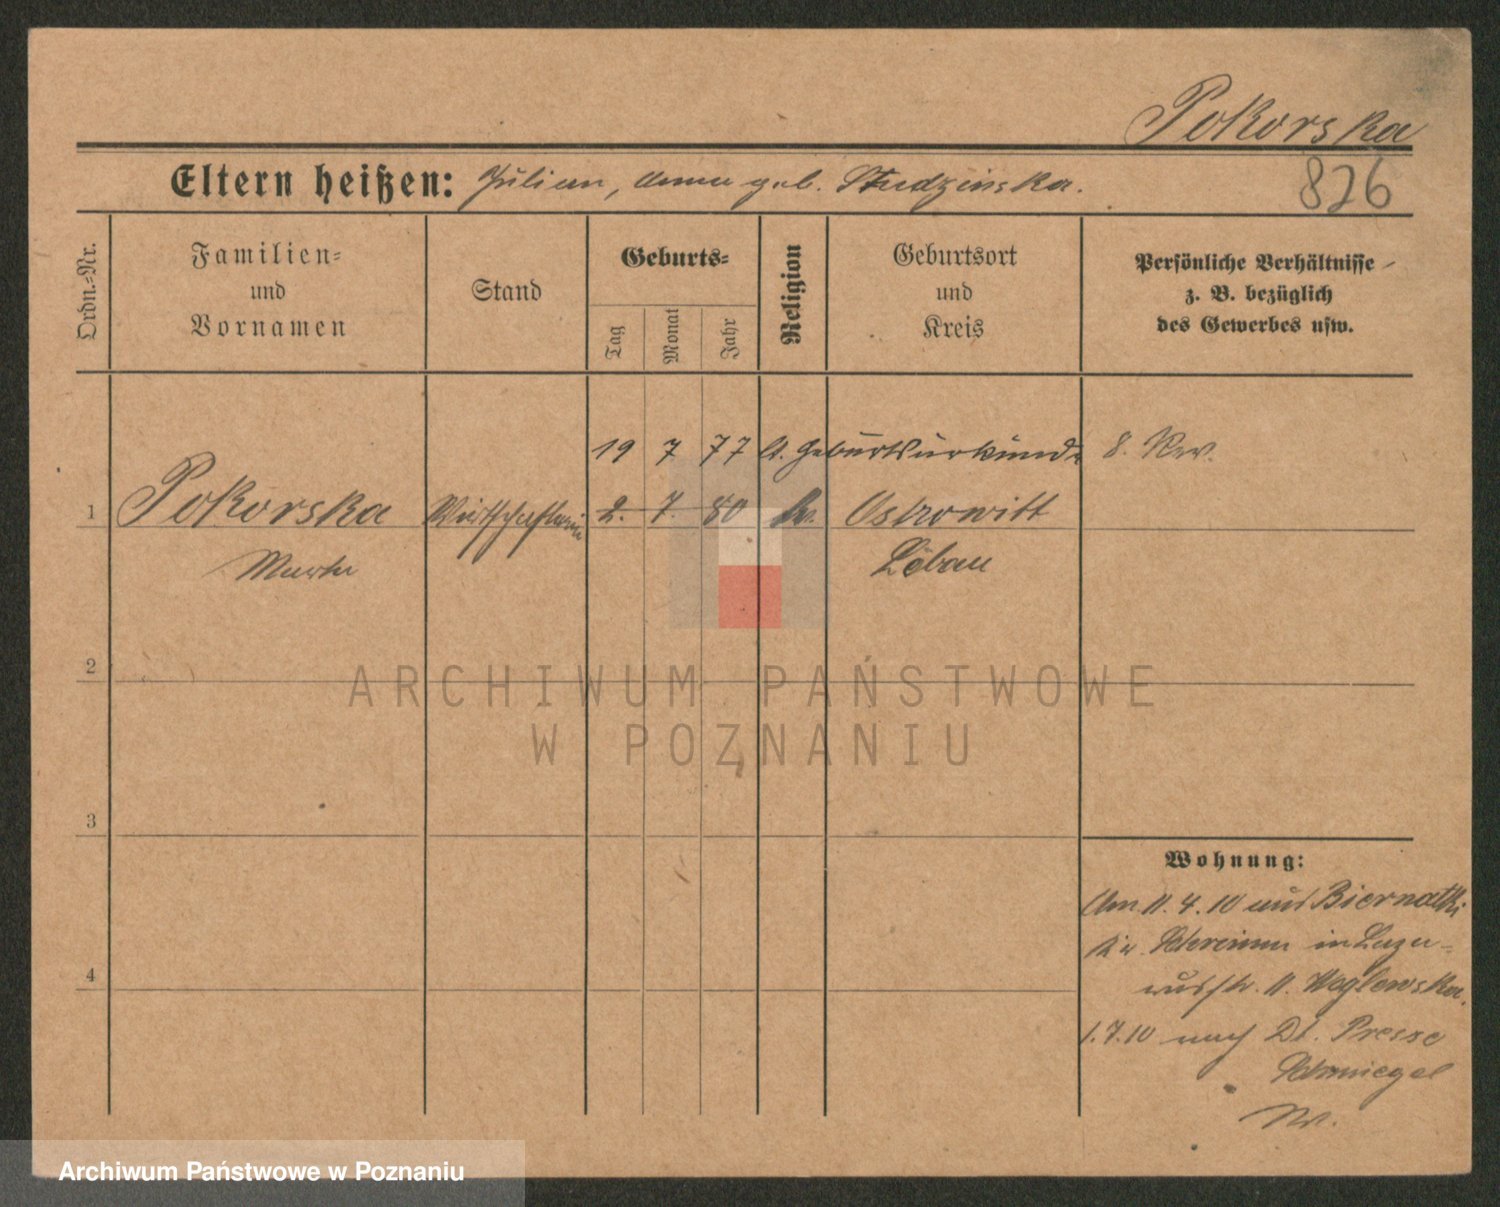 Pokorska
826
Eltern heißen: Julian, Anna geb. Studzinska.
Ordn.-Nr.
Familien-
und
Vornamen
Stand
Geburts-
Tag
Monat
Jahr
Religion
Geburtsort
und
Kreis
Persönliche Verhältnisse
z. B. bezüglich
des Gewerbes usw.
19 7 77 lt. Geburtsurkunde
1 Pokorska Wirtschafterin 2. 7. 80 Ostrowitt
Marta Löbau
2
3
4
Wohnung:
Am 11.4.10 aus Biernatki
Kr. Schrimm in Laza-
russtr. 11.
1.7.10 nach Dt. Presse
Schmiegel
ARCHIWUM PAŃSTWOWE
W POZNANIU
Archiwum Państwowe w Poznaniu